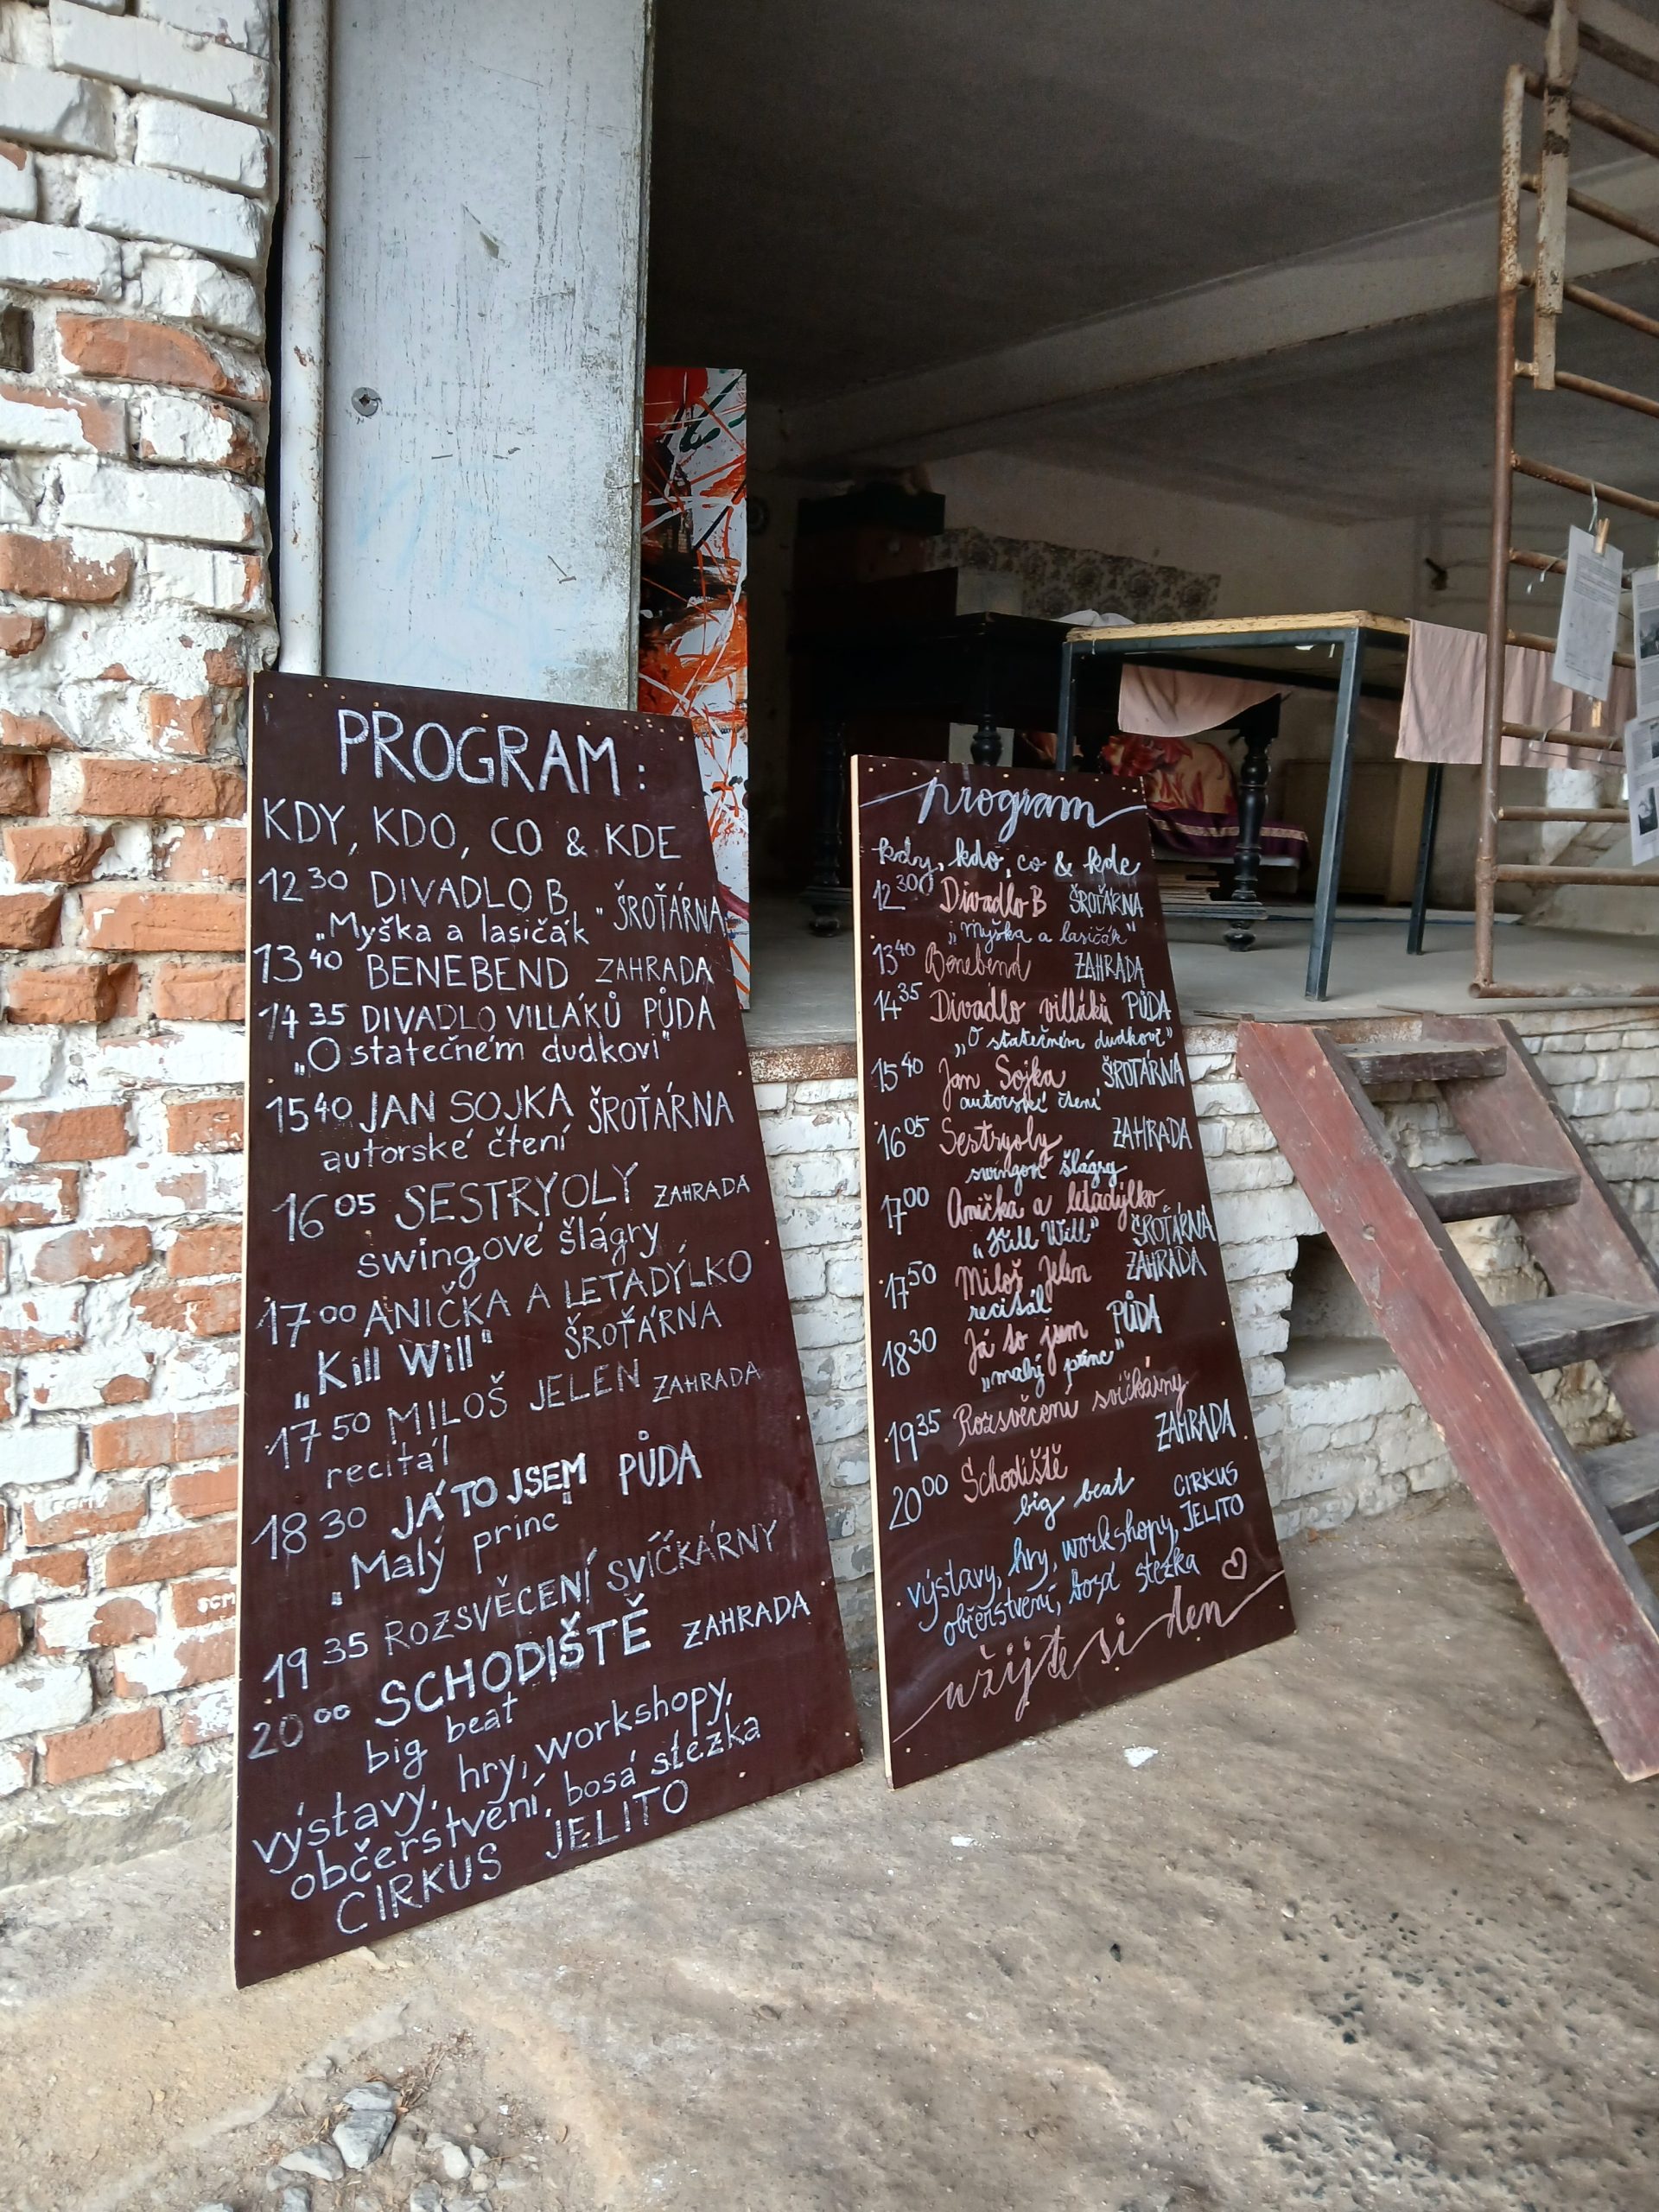 PROGRAM:
KDY, KDO, CO & KDE
12 30 DIVADLO B ŠROŤÁRNA
„Myška a lasičák"
13 40 BENEBEND ZAHRADA
14 35 DIVADLO VILLÁKŮ PŮDA
„O statečném dudkovi"
15 40 JAN SOJKA ŠROŤÁRNA
autorské čtení
16 05 SESTRYOLY ZAHRADA
swingové šlágry
17 00 ANIČKA A LETADÝLKO
„Kill Will" ŠROŤÁRNA
17 50 MILOŠ JELEN ZAHRADA
recitál
18 30 JÁ TO JSEM PŮDA
„Malý princ"
19 35 ROZSVĚCENÍ SVÍČKÁRNY
20 00 SCHODIŠTĚ ZAHRADA
big beat
výstavy, hry, workshopy,
občerstvení, bosá stezka
CIRKUS JELITO
program
kdy, kdo, co & kde
12 30 Divadlo B ŠROŤÁRNA
„Myška a lasičák"
13 40 Benebend ZAHRADA
14 35 Divadlo villáků PŮDA
„O statečném dudkovi"
15 40 Jan Sojka ŠROŤÁRNA
autorské čtení
16 05 Sestryoly ZAHRADA
swingové šlágry
17 00 Anička a letadýlko
„Kill Will" ŠROŤÁRNA
17 50 Miloš Jelen ZAHRADA
recitál
18 30 Já to jsem PŮDA
„malý princ"
19 35 Rozsvěcení svíčkárny
20 00 Schodiště ZAHRADA
big beat CIRKUS
výstavy, hry, workshopy, JELITO
občerstvení, bosá stezka
užijte si den